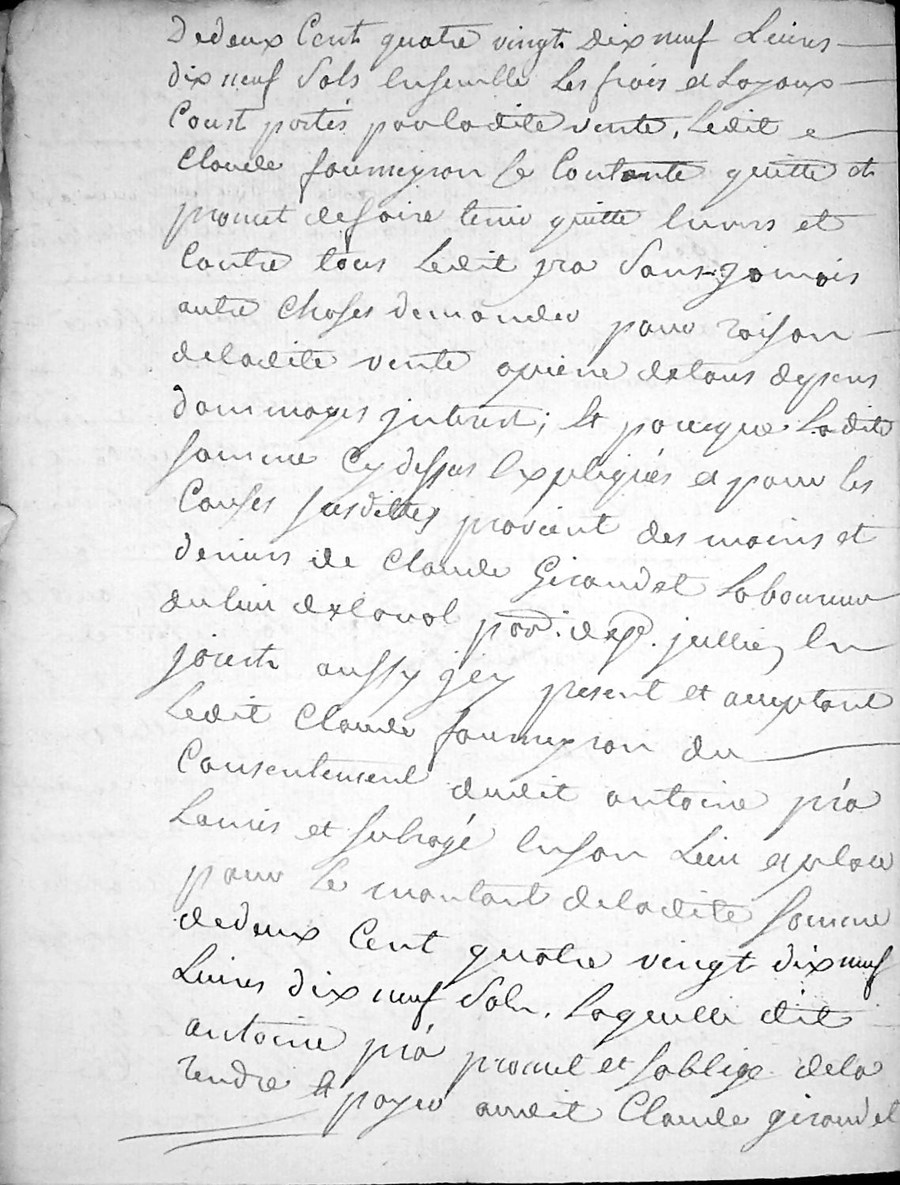 dedeux Cent quatre vingt dix neuf Livres
dix neuf Sols Ensemble Les frais et Loyaux
Coust portés parladite vente, Ledit
Claude fourneyron Se Contante quitte et
promet defaire tenir quitte Envers et
Contre tous Ledit pra Sans jamais
autre Choses demander pour raison
deladite vente apiene detous depens
dommages jnterest ; Et parceque Ladite
Somme Cy dessus Expliquée et pour les
Causes susdittes provient des mains et
deniers de Claude Giraudet Laboureur
du lieu de parr. de jullien En
jarest aussy jcy present et aceptant
Ledit Claude fourneyron du
Consentement dudit antoine pra
La mis et subrogé Enson Lieu et place
pour le montant deladite Somme
dedeux Cent quatre vingt dix neuf
Livres dix neuf Sols, Laquelle dit
antoine pra promet et Soblige dela
rendre et payer audit Claude giraudet